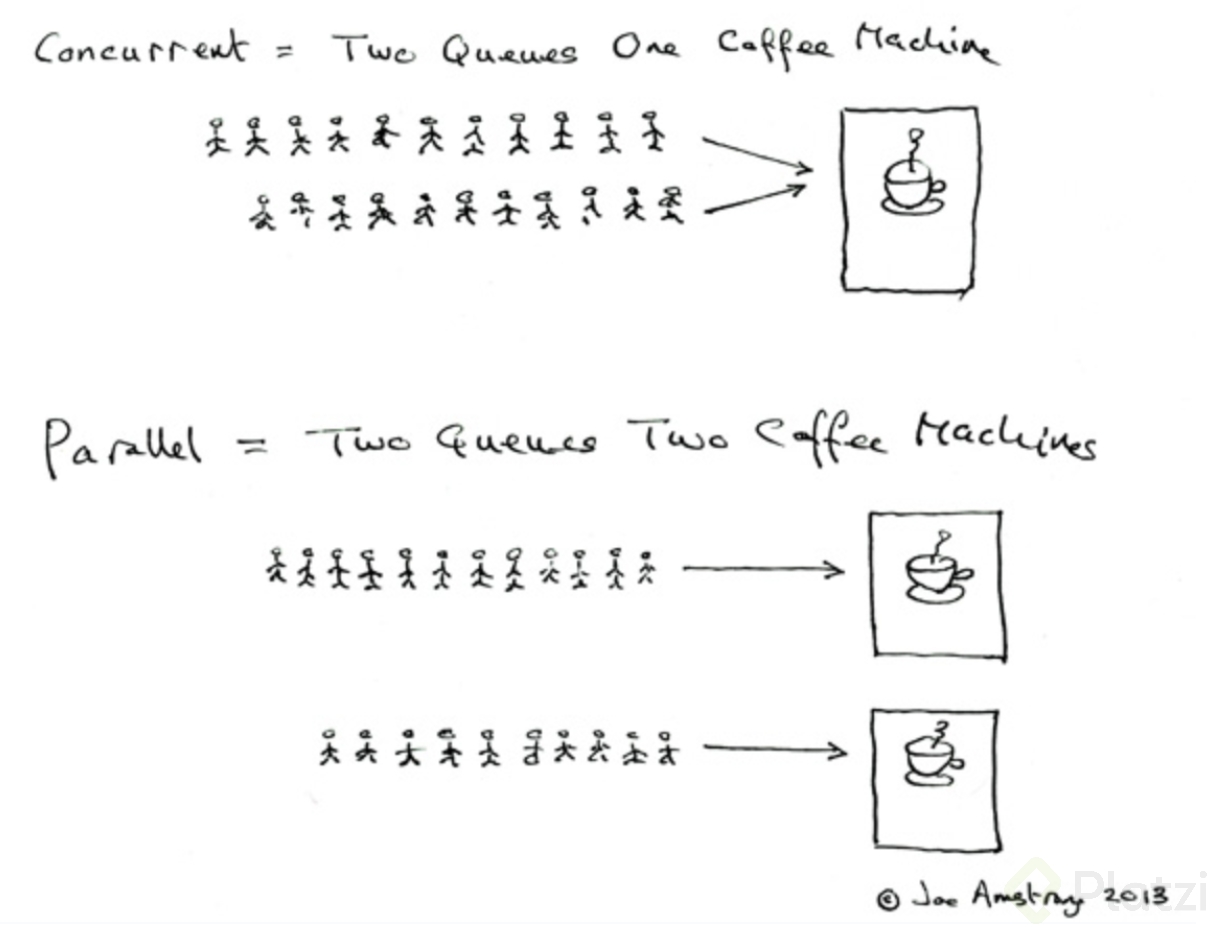 Concurrent = Two Queues One Coffee Machine
Parallel = Two Queues Two Coffee Machines
© Joe Armstrong 2013
Platzi